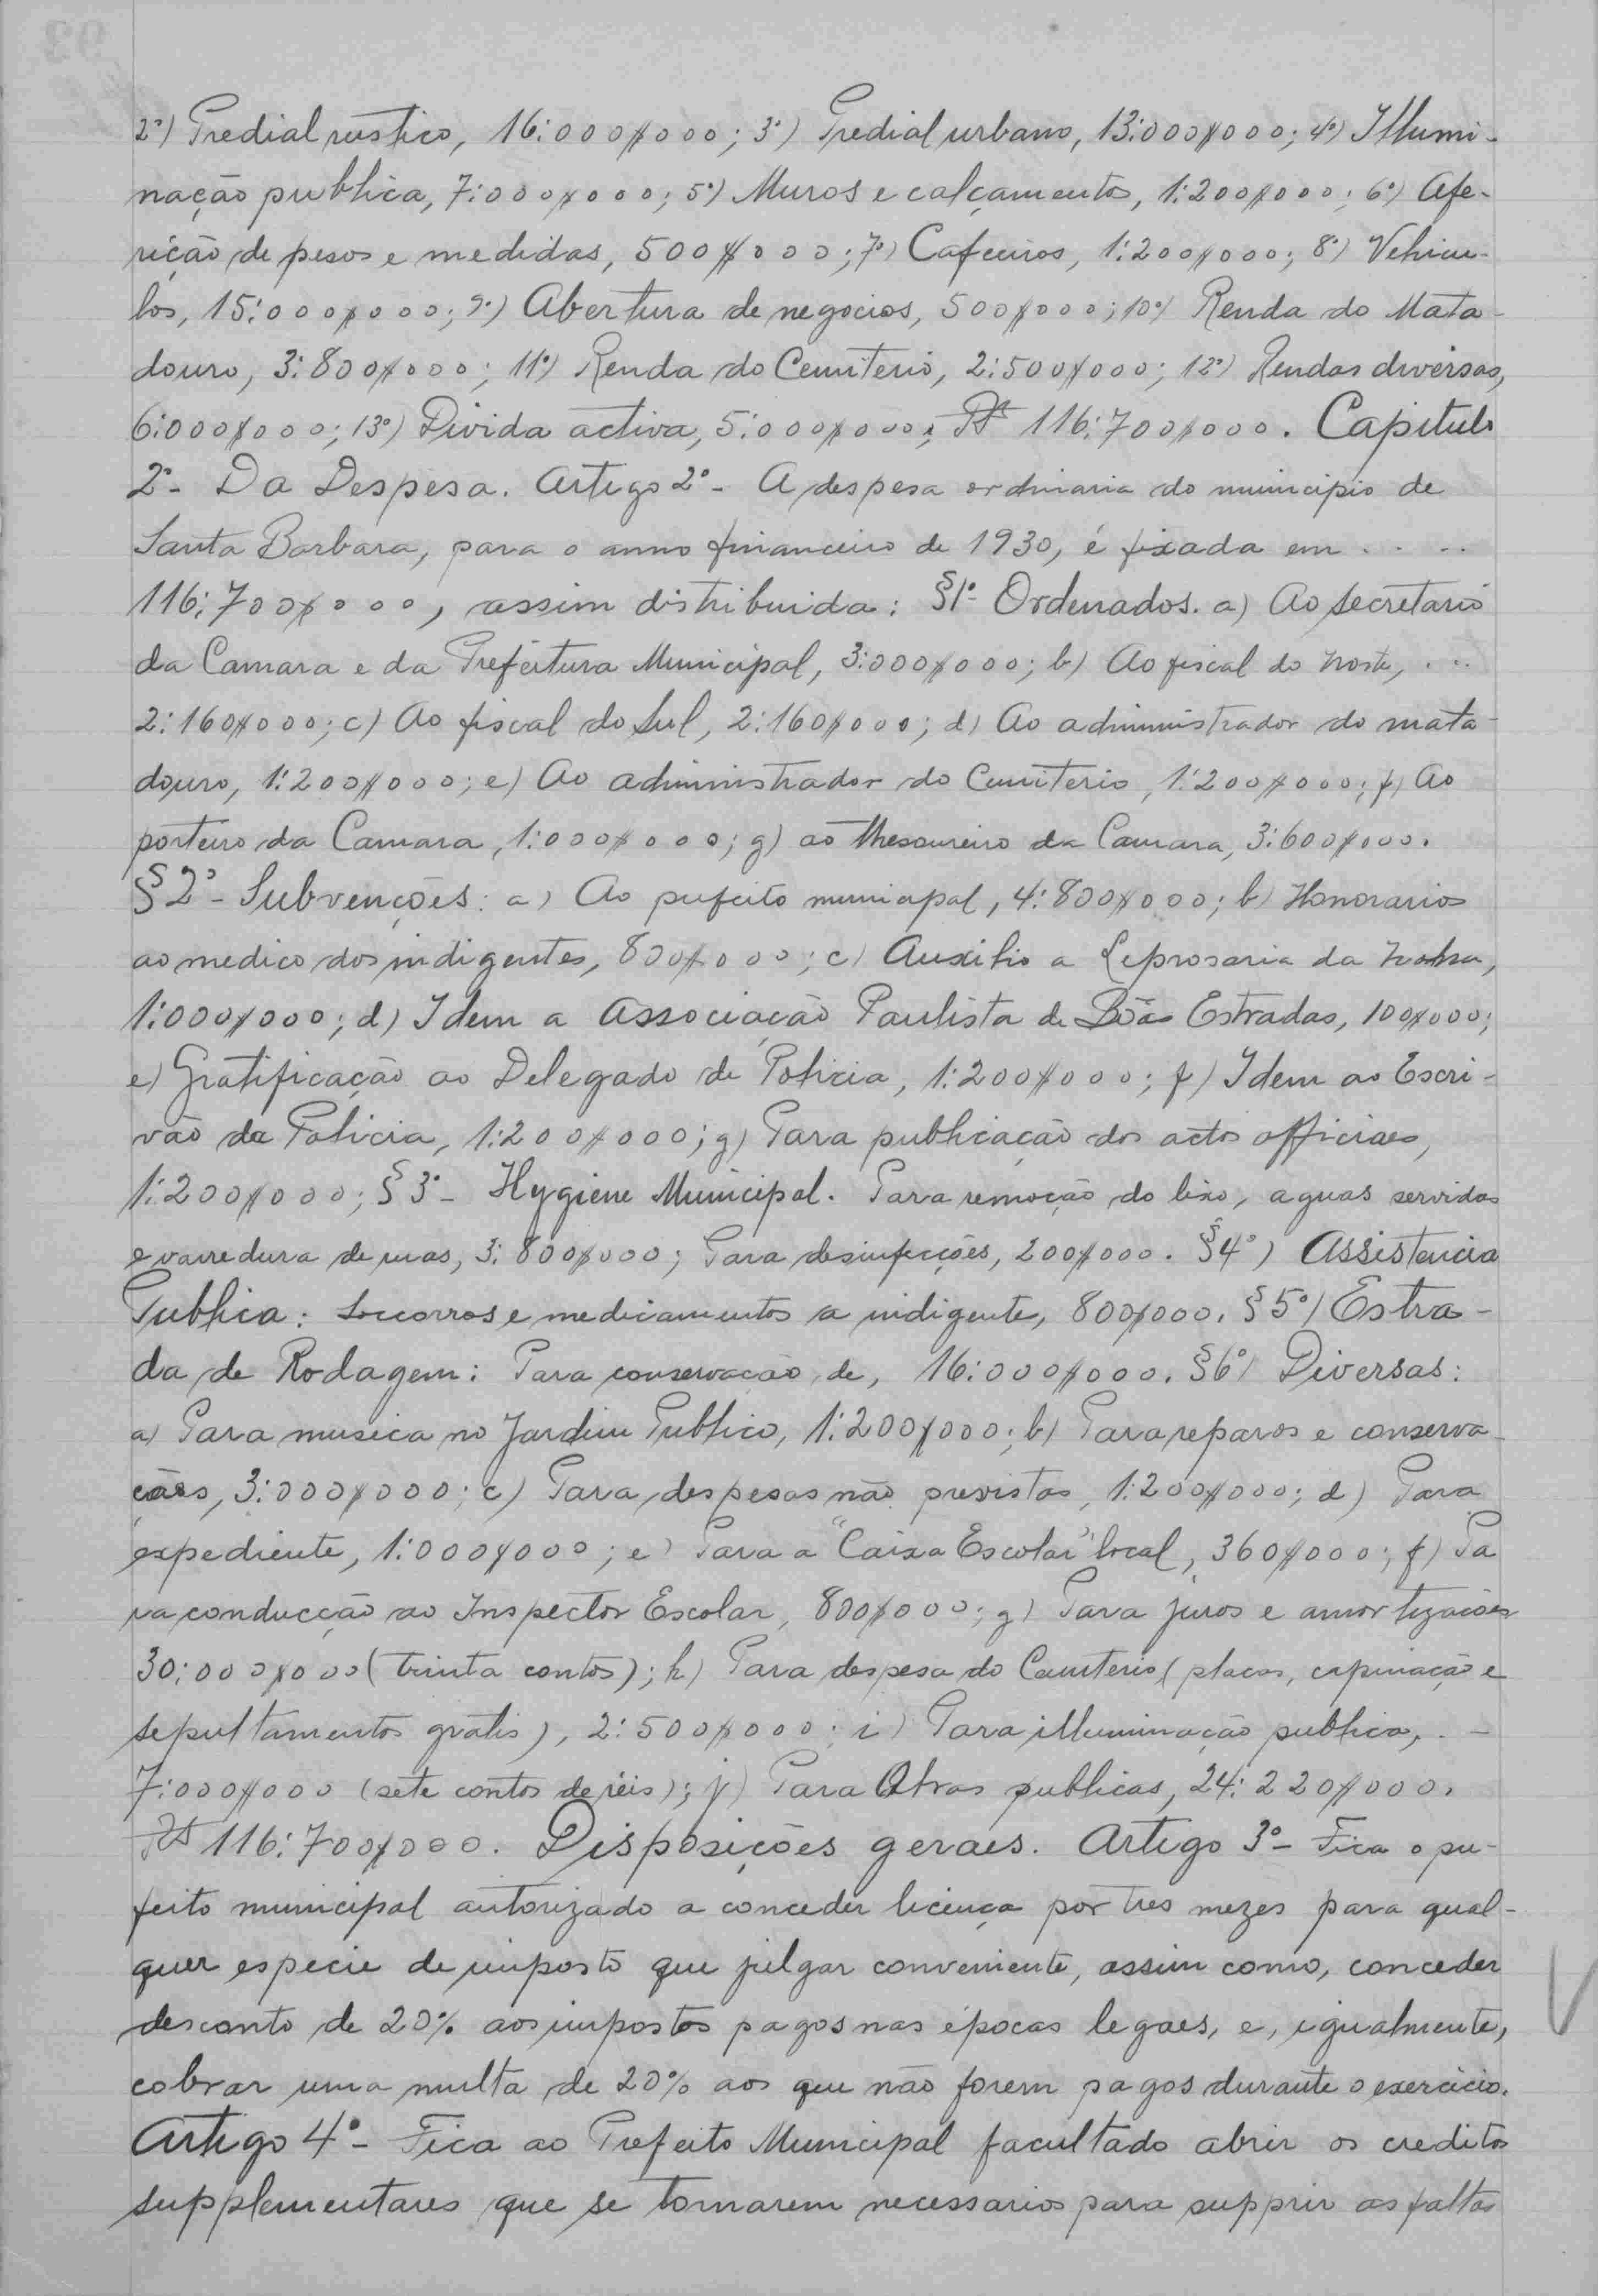 2º) Predial rustico, 16:000$000; 3º) Predial urbano, 13:000$000; 4º) Illumi-
nação publica, 7:000$000; 5º) Muros e calçamentos, 1:200$000; 6º) Afe-
rição de pesos e medidas, 500$000; 7º) Cafeeiros, 1:200$000; 8º) Vehicu-
los, 15:000$000; 9º) Abertura de negocios, 500$000; 10º) Renda do Mata-
douro, 3:800$000; 11º) Renda do Cemiterio, 2:500$000; 12º) Rendas diversas,
6:000$000; 13º) Divida activa, 5:000$000; Rs 116:700$000. Capitulo
2º- Da Despesa. Artigo 2º- A despesa ordinaria do municipio de
Santa Barbara, para o anno financeiro de 1930, é fixada em . . . .
116:700$000, assim distribuida: §1º- Ordenados. a) Ao secretario
da Camara e da Prefeitura Municipal, 3:000$000; b) Ao fiscal do Norte, . . .
2:160$000; c) Ao fiscal do Sul, 2:160$000; d) Ao administrador do mata-
douro, 1:200$000; e) Ao administrador do Cemiterio, 1:200$000; f) Ao
porteiro da Camara, 1:000$000; g) ao thesoureiro da Camara, 3:600$000.
§2º- Subvenções: a) Ao prefeito municipal, 4:800$000; b) Honorarios
ao medico dos indigentes, 800$000; c) Auxilio a Leprosaria da
1:000$000; d) Idem a Associação Paulista de Bôas Estradas, 100$000;
e) Gratificação ao Delegado de Policia, 1:200$000; f) Idem ao Escri-
vão da Policia, 1:200$000; g) Para publicação dos actos officiaes,
1:200$000; §3º- Hygiene Municipal. Para remoção do lixo, aguas servidas
e varredura de ruas, 3:800$000; Para desinfecções, 200$000. §4º) Assistencia
Publica: Soccorros e medicamentos a indigente, 800$000. §5º) Estra-
da de Rodagem: Para conservação de, 16:000$000. §6º) Diversas:
a) Para musica no Jardim Publico, 1:200$000; b) Para reparos e conserva-
ções, 3:000$000; c) Para despesas não previstas, 1:200$000; d) Para
expediente, 1:000$000; e) Para a "Caixa Escolar" local, 360$000; f) Pa
ra conducção ao Inspector Escolar, 800$000; g) Para juros e amortizações
30:000$000 (trinta contos); h) Para despesa do Cemiterio (placas, capinação e
sepultamentos gratis), 2:500$000; i) Para illuminação publica, . -
7:000$000 (sete contos de réis); j) Para Obras publicas, 24:220$000.
Rs 116:700$000. Disposições geraes. Artigo 3º- Fica o pre-
feito municipal autorizado a conceder licença por tres mezes para qual-
quer especie de imposto que julgar conveniente, assim como, conceder
desconto de 20% aos impostos pagos nas épocas legaes, e, igualmente,
cobrar uma multa de 20% aos que não forem pagos durante o exercicio.
Artigo 4º- Fica ao Prefeito Municipal facultado abrir os creditos
supplementares que se tornarem necessarios para supprir as faltas